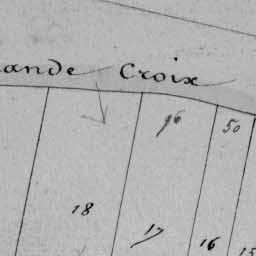 ande Croix
96 50
18 17 16 15